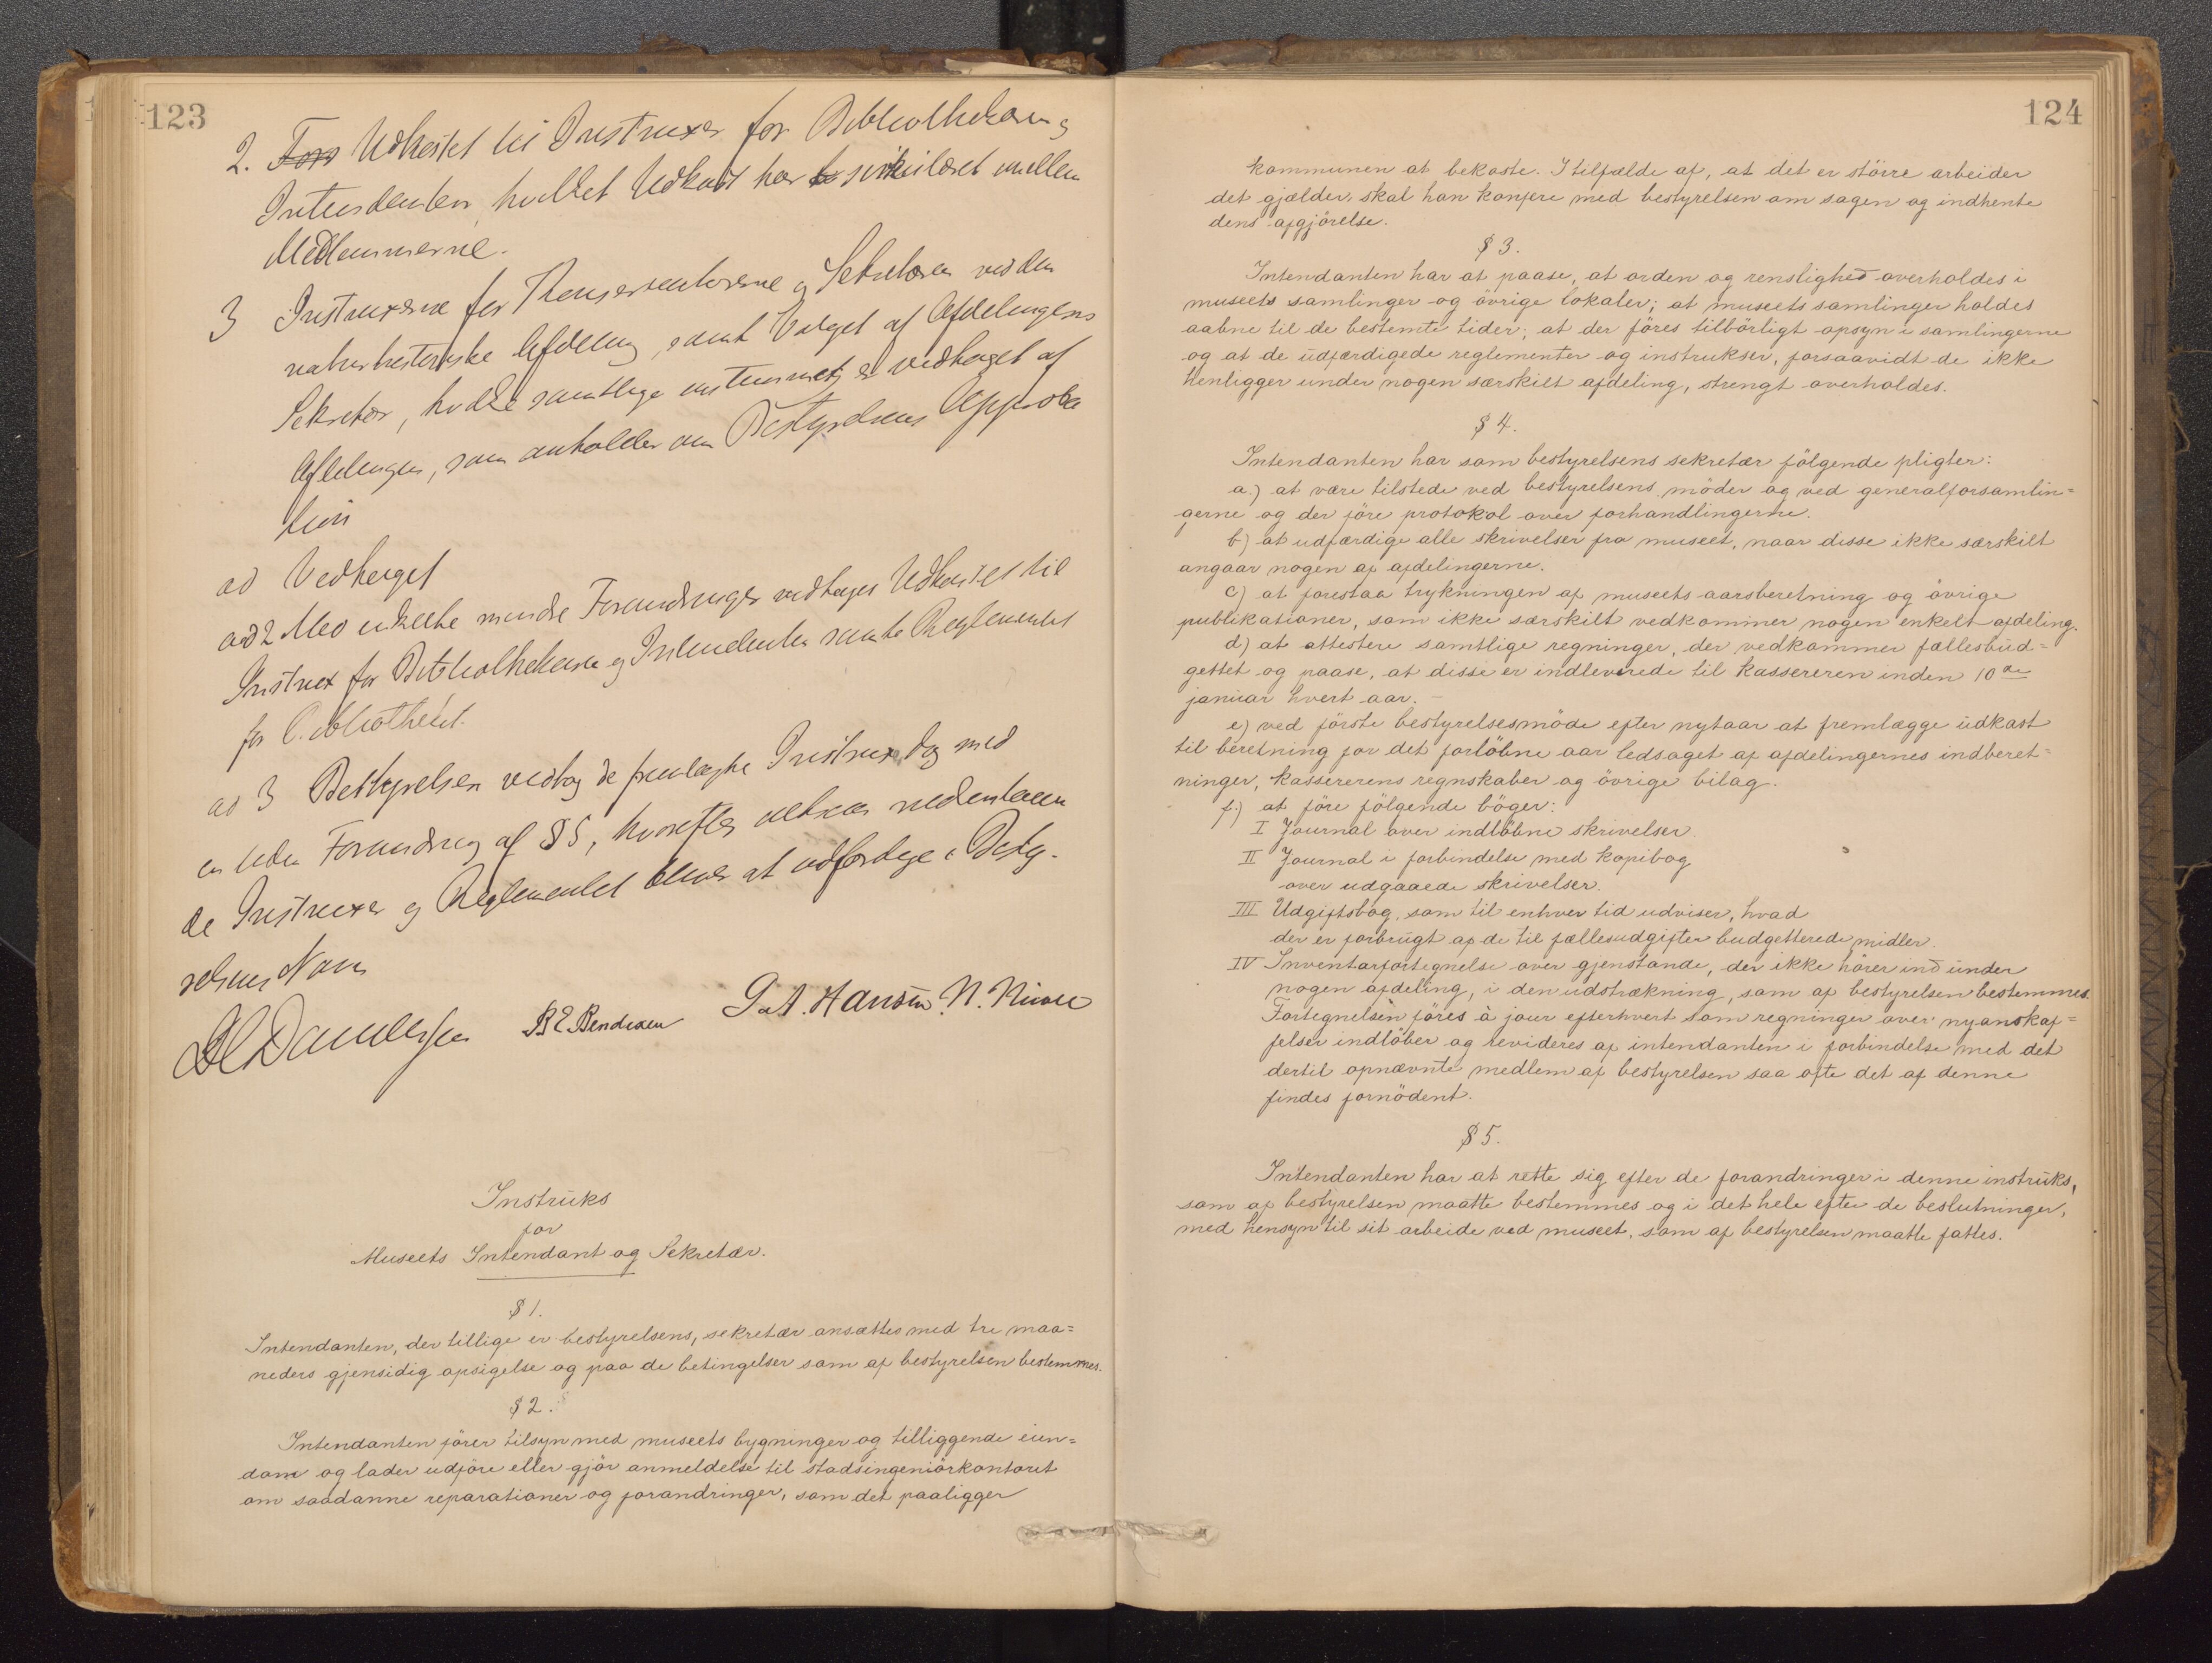 123
2. Fors Udkastet til Instruxer for Bibliothekaren og
Intendanten, hvilket Udkast har sirkuleret mellem
Medlemmerne.
3 Instruxerne for Konservatorerne og Sekretæren ved den
naturhistoriske Afdeling, samt Valget af Afdelingens
Sekretær, hvilke samtlige er vedtaget af
Afdelingen, som anholder om Bestyrelsens Approba
tion
ad Vedtaget
ad 2 Med enkelte mindre Forandringer vedtages Udkastet til
Instrux for Bibliothekaren og Intendanten samt Reglementet
for Bibliotheket.
ad 3 Bestyrelsen vedtog de fremlagte Instruxer dog med
en liden Forandring af § 5, hvorefter nedenstaaen
de Instruxer og Reglementet bliver at udfærdige i Besty-
relsens Navn
DC Danielssen B E. Bendixen G. A. Hansen. N. Nicoll
Instruks
for
Museets Intendant og Sekretær.
§ 1.
Intendanten, der tillige er bestyrelsens, sekretær ansættes med tre maa=
neders gjensidig opsigelse og paa de betingelser som af bestyrelsen bestemmes.
§ 2.
Intendanten förer tilsyn med museets bygninger og tilliggende eien=
dom og lader udföre eller gjör anmeldelse til stadsingeniörkontoret
om saadanne reparationer og forandringer, som det paaligger
124
kommunen at bekoste. I tilfælde af, at det er större arbeider
det gjælder, skal han konfere med bestyrelsen om sagen og indhente
dens afgjörelse.
§ 3.
Intendanten har at paase, at orden og renslighed overholdes i
museets samlinger og övrige lokaler; at museets samlinger holdes
aabne til de bestemte tider; at der föres tilbörligt opsyn i samlingerne
og at de udfærdigede reglementer og instrukser, forsaavidt de ikke
henligger under nogen særskilt afdeling, strengt overholdes.
§ 4.
Intendanten har som bestyrelsens sekretær fölgende pligter:
a.) at være tilstede ved bestyrelsens möder og ved generalforsamlin=
gerne og der före protokol over forhandlingerne.
b) at udfærdige alle skrivelser fra museet, naar disse ikke særskilt
angaar nogen af afdelingerne.
c) at forestaa trykningen af museets aarsberetning og övrige
publikationer, som ikke særskilt vedkommer nogen enkelt afdeling.
d) at attestere samtlige regninger, der vedkommer fællesbud=
gettet og paase, at disse er indleverede til kassereren inden 10de
januar hvert aar. –
e) ved förste bestyrelsesmöde efter nytaar at fremlægge udkast
til beretning for det forlöbne aar ledsaget af afdelingernes indberet=
ninger, kassererens regnskaber og övrige bilag.
f.) at före fölgende böger:
I Journal over indlöbne skrivelser.
II Journal i forbindelse med kopibog
over udgaaede skrivelser.
III Udgiftsbog, som til enhver tid udviser, hvad
der er forbrugt af de til fællesudgifter budgetterede midler.
IV Inventarfortegnelse over gjenstande, der ikke hörer ind under
nogen afdeling, i den udstrækning, som af bestyrelsen bestemmes.
Fortegnelsen föres à jour efterhvert som regninger over nyanskaf=
felser indlöber og revideres af intendanten i forbindelse med det
dertil opnævnte medlem af bestyrelsen saa ofte det af denne
findes fornödent.
§ 5.
Intendanten har at rette sig efter de forandringer i denne instruks,
som af bestyrelsen maatte bestemmes og i det hele efter de beslutninger,
med hensyn til sit arbeide ved museet, som af bestyrelsen maatte fattes.